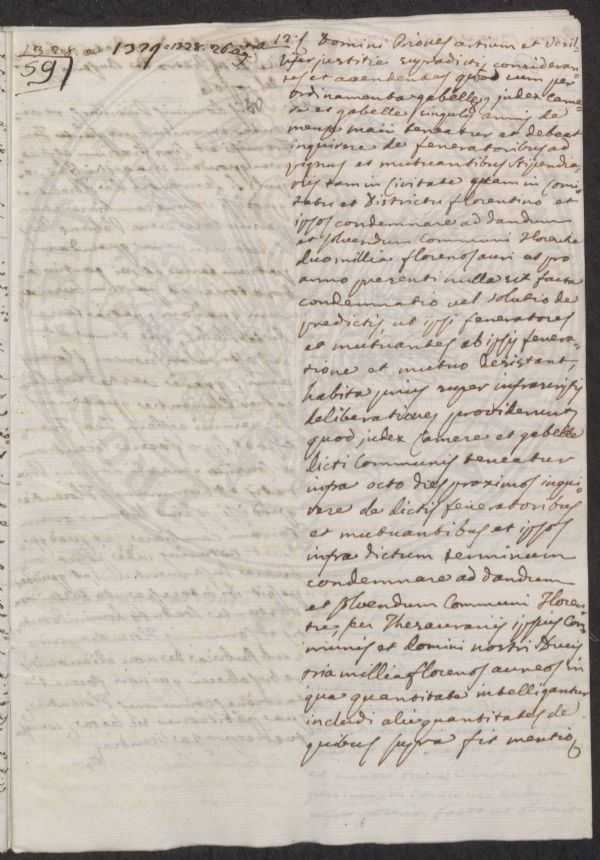 1328 a 1329 = 1328. 26
597
Domini Priores artium et Vexil=
lifer justitie supradicti, consideran=
tes et attendentes quod cum per
ordinamenta gabelle, judex Came=
re et gabelle singulis annis de
mense maii teneatur et debeat
inquirere de feneratoribus ad
pignus et mutuantibus stipendia=
riis tam in Civitate quam in Comi=
tatu et Districtu florentino et
ipsos condemnare ad dandum
et solvendum Communi Florentie
duo millia florenos auri et pro
anno presenti nulla sit facta
condemnatio vel solutio de
predictis, ut ipsi feneratores
et mutuantes ab ipsis fenera=
tione et mutuo desistant,
habita prius super infrascriptis
deliberatione, providerunt
quod judex Camere et gabelle
dicti Communis teneatur
infra octo dies proximos inqui=
rere de dictis feneratoribus
et mutuantibus et ipsos
infra dictum terminum
condemnare ad dandum
et solvendum Communi Floren=
tie, seu Thesaurariis ipsius Com=
munis et domini nostri Ducis
tria millia florenos aureos in
qua quantitate intelligantur
includi alie quantitates de
quibus supra fit mentio